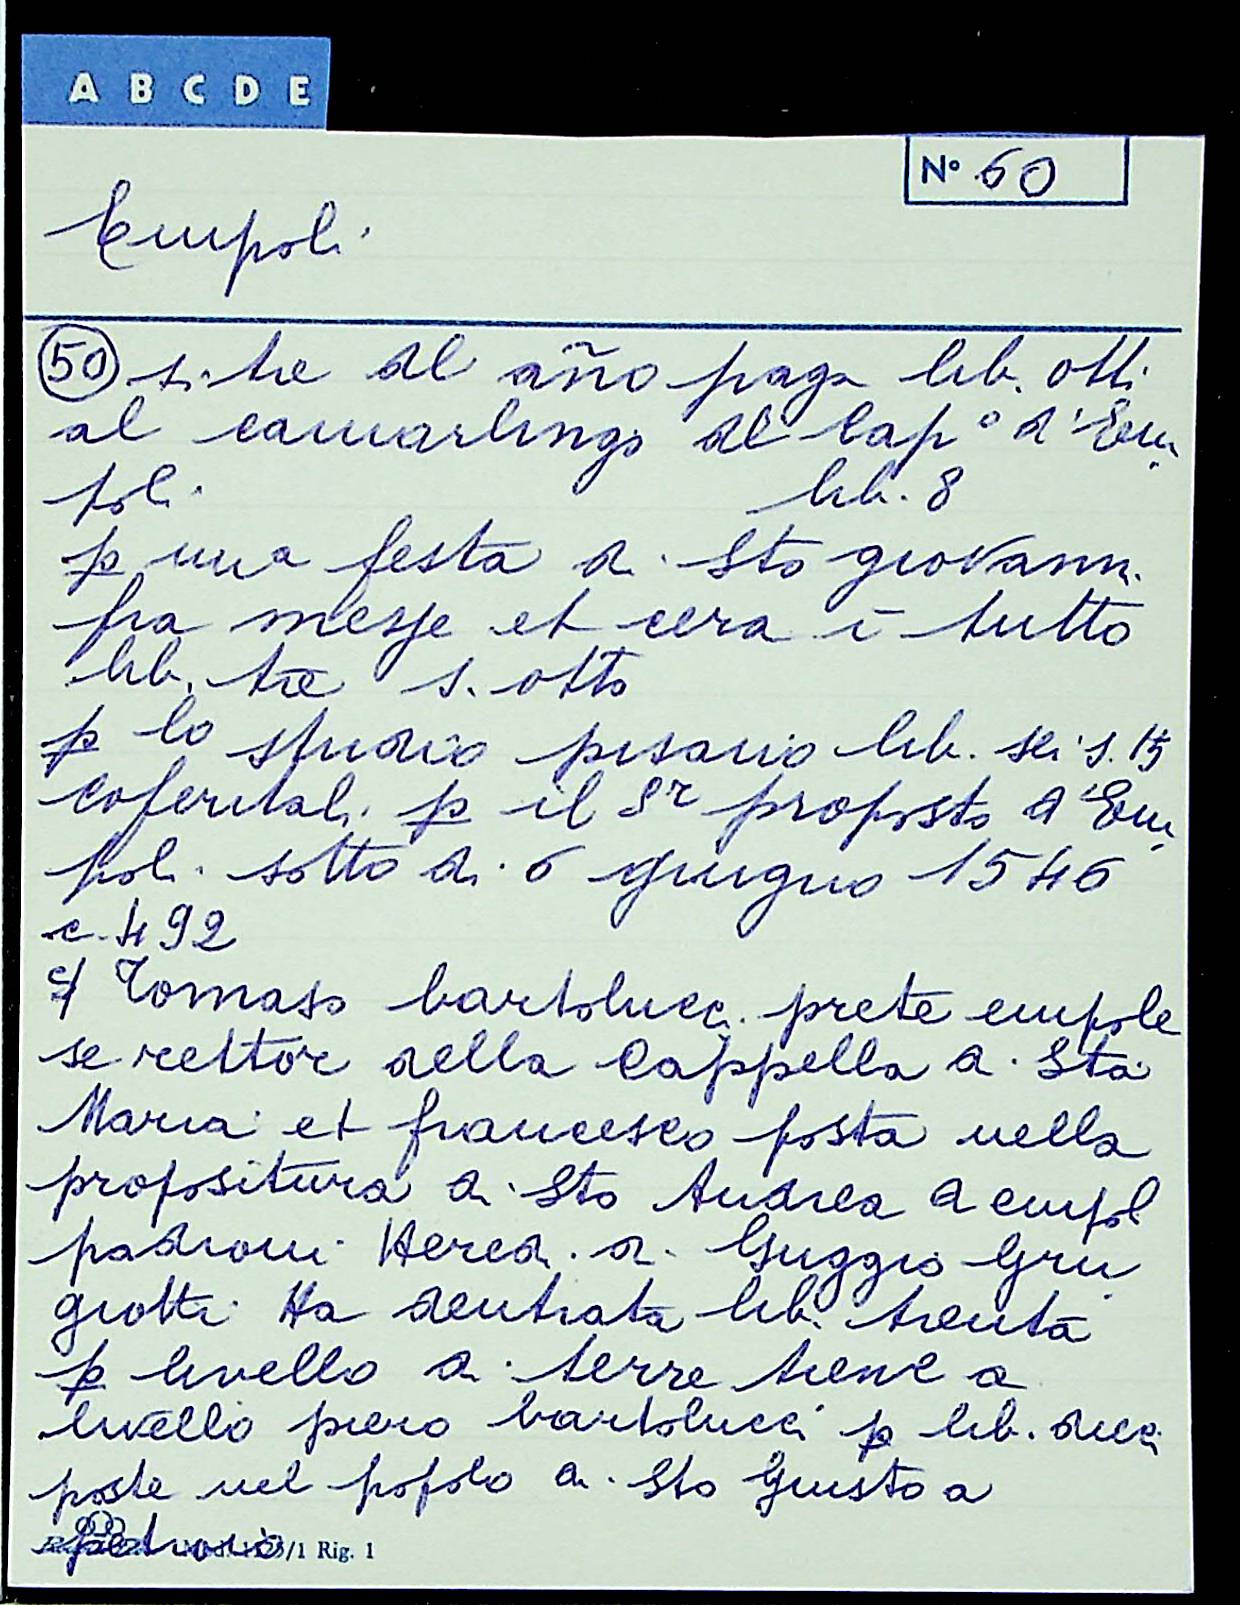 A B C D E
Nº 60
Empoli
50 s. tre al año paga lib. otti
al camarlingo del Cap° d'Em
poli lib. 8
p una festa di Sto giovanni
fra messe et cera ī tutto
lib. tre s. otto
p lo studio pisano lib. sei s. 15
cofertali p il Sr proposto d'Em
poli sotto di 6 giugno 1546
c. 492
Tomaso bartolucci prete empole
se rettor della Cappella di Sta
Maria et francesco posta nella
propositura di Sto Andrea a empoli
padroni Heredi di Guggio Gru
giotti Ha dentrata lib. trenta
p livello di terre tiene a
livello piero bartolucci p lib. dieci
poste nel popolo di Sto Giusto a
petroio
/1 Rig. 1